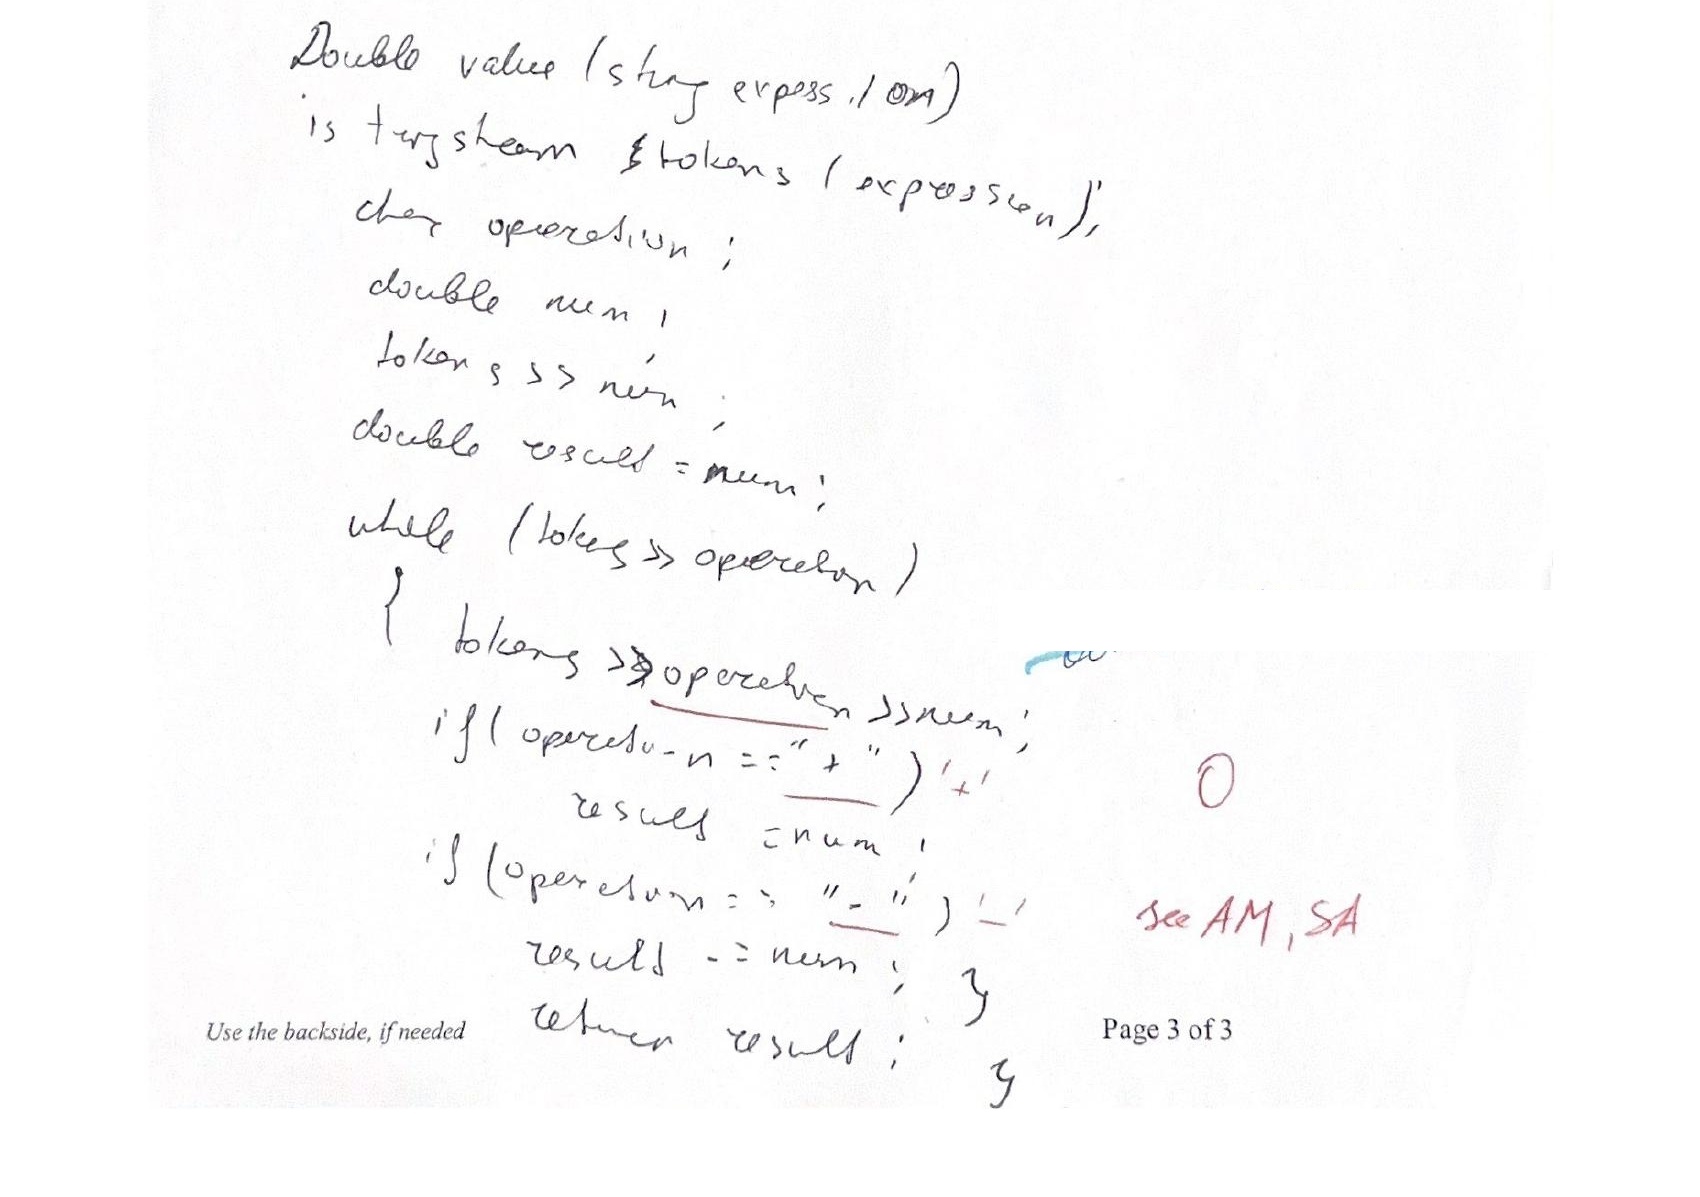 Double value (string expession)
istringstream tokens (expression);
char operation;
double num;
tokens >> num;
double result = num;
while (tokens >> operation)
{ tokens >> operation >> num;
if( operation == "+" ) '+'
0
result = num;
if (operation == "-" ) '-'
see AM, SA
result -= num; }
Use the backside, if needed return result; Page 3 of 3
}